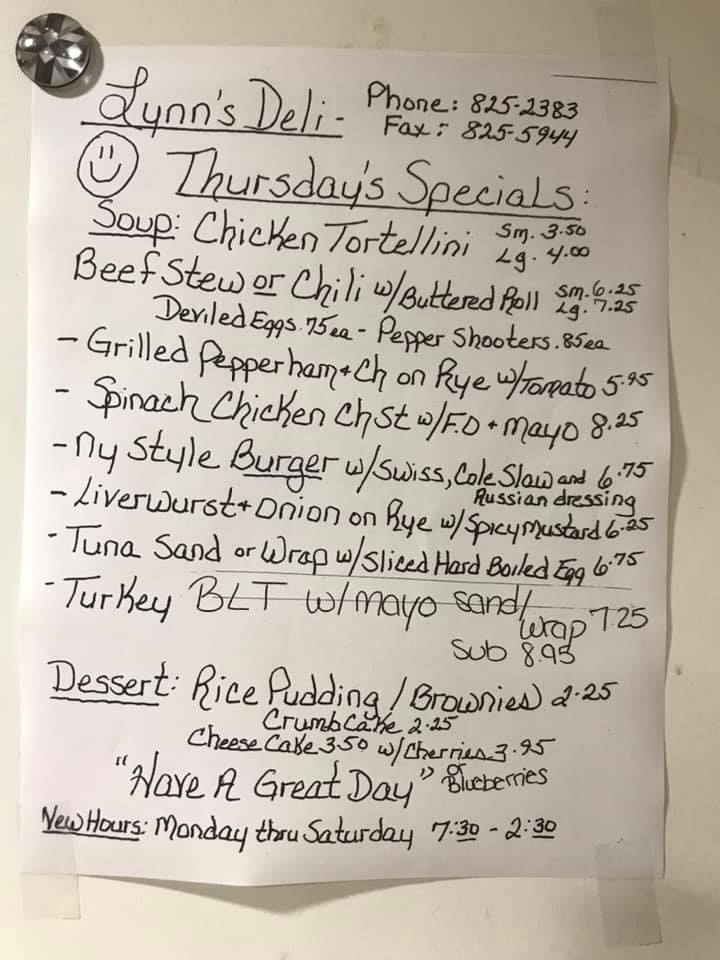 Lynn's Deli - Phone: 825-2383
Fax: 825-5944
Thursday's Specials:
Soup: Chicken Tortellini Sm. 3.50
Lg. 4.00
Beef Stew or Chili w/Buttered Roll Sm. 6.25
Lg. 7.25
Deviled Eggs .75 ea - Pepper Shooters .85 ea
- Grilled Pepperham + Ch on Rye w/Tomato 5.95
- Spinach Chicken Ch St w/F.O + Mayo 8.25
- Ny Style Burger w/Swiss, Cole Slaw and 6.75
Russian dressing
- Liverwurst + Onion on Rye w/Spicy Mustard 6.25
- Tuna Sand or Wrap w/Sliced Hard Boiled Egg 6.75
- Turkey BLT w/mayo sand/
wrap 7.25
Sub 8.95
Dessert: Rice Pudding / Brownies 2.25
Crumb Cake 2.25
Cheese Cake 3.50 w/Cherries 3.95
or
"Have A Great Day" Blueberries
New Hours: Monday thru Saturday 7:30 - 2:30